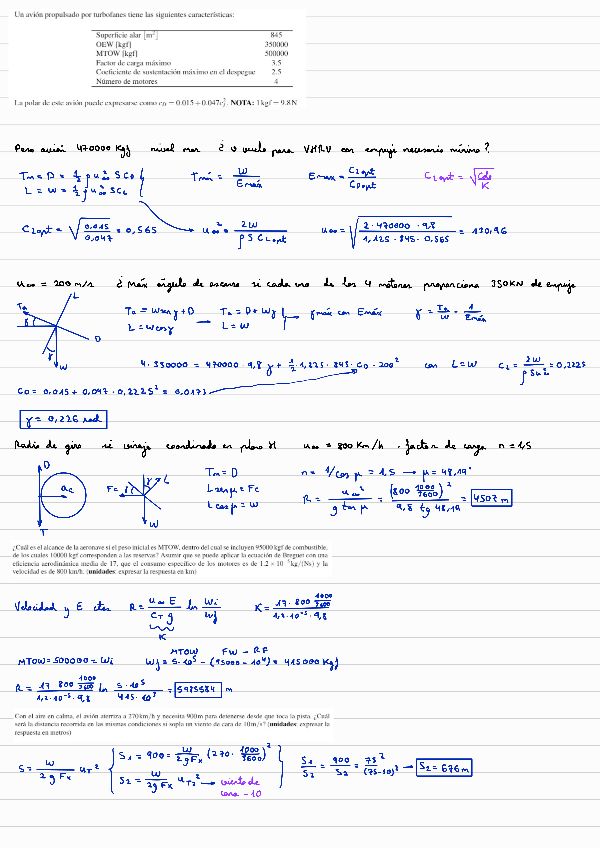 Un avión propulsado por turbofanes tiene las siguientes características:
Superficie alar [m²] 845
OEW [kgf] 350000
MTOW [kgf] 500000
Factor de carga máximo 3.5
Coeficiente de sustentación máximo en el despegue 2.5
Número de motores 4
La polar de este avión puede expresarse como c_D = 0.015 + 0.047c_L². NOTA: 1 kgf = 9.8 N
Peso avión 470000 Kgf nivel mar ¿ v vuelo para VHRU con empuje necesario mínimo?
Tm = D = 1/2 ρ u∞² S C_D
L = W = 1/2 ρ u∞² S C_L
Tmín = W / Emáx
Emax = C_Lopt / C_Dopt
C_Lopt = √(C_D0 / K)
C_Lopt = √(0,015 / 0,047) = 0,565
u∞² = 2W / (ρ S C_Lopt)
u∞ = √(2 · 470000 · 9,8 / (1,225 · 845 · 0,565)) = 130,96
u∞ = 200 m/s ¿ Máx ángulo de ascenso si cada uno de los 4 motores proporciona 350KN de empuje
L
Ta
γ
D
γ
W
Ta = W sen γ + D
L = W cos γ
Ta = D + Wγ
L = W
γ max con Emáx
γ = Ta/W - 1/Emáx
4 · 350000 = 470000 · 9,8 γ + 1/2 · 1,225 · 845 · C_D · 200² con L = W C_L = 2W / (ρ S u∞²) = 0,2225
C_D = 0,015 + 0,047 · 0,2225² = 0,0173
γ = 0,226 rad
Radio de giro si viraje coordinado en plano H u∞ = 800 Km/h · factor de carga n = 1,5
D
ac
T
Fc
μ
L
W
Tm = D
L sen μ = Fc
L cos μ = W
n = 1/cos μ = 1,5 → μ = 48,19°
R = u∞² / (g tan μ) = (800 1000/3600)² / (9,8 tg 48,19) = 4507 m
¿Cuál es el alcance de la aeronave si el peso inicial es MTOW, dentro del cual se incluyen 95000 kgf de combustible,
de los cuales 10000 kgf corresponden a las reservas? Asumir que se puede aplicar la ecuación de Breguet con una
eficiencia aerodinámica media de 17, que el consumo específico de los motores es de 1.2 × 10⁻⁵ kg/(Ns) y la
velocidad es de 800 km/h. (unidades: expresar la respuesta en km)
Velocidad y E ctes R = u∞ E / (C_T g) ln Wi/Wf K = 17 · 800 1000/3600 / (1,2 · 10⁻⁵ · 9,8)
K
MTOW FW - RF
MTOW = 500000 = Wi Wf = 5 · 10⁵ - (95000 - 10⁴) = 415000 Kgf
R = 17 · 800 1000/3600 / (1,2 · 10⁻⁵ · 9,8) ln 5 · 10⁵ / 415 · 10³ = 5985584 m
Con el aire en calma, el avión aterriza a 270 km/h y necesita 900m para detenerse desde que toca la pista. ¿Cuál
será la distancia recorrida en las mismas condiciones si sopla un viento de cara de 10 m/s? (unidades: expresar la
respuesta en metros)
S = W / (2 g Fx) u_T²
S1 = 900 = W / (2 g Fx) (270 · 1000/3600)²
S2 = W / (2 g Fx) u_T2² → viento de cara - 10
S1/S2 = 900/S2 = 75² / (75-10)² → S2 = 676 m